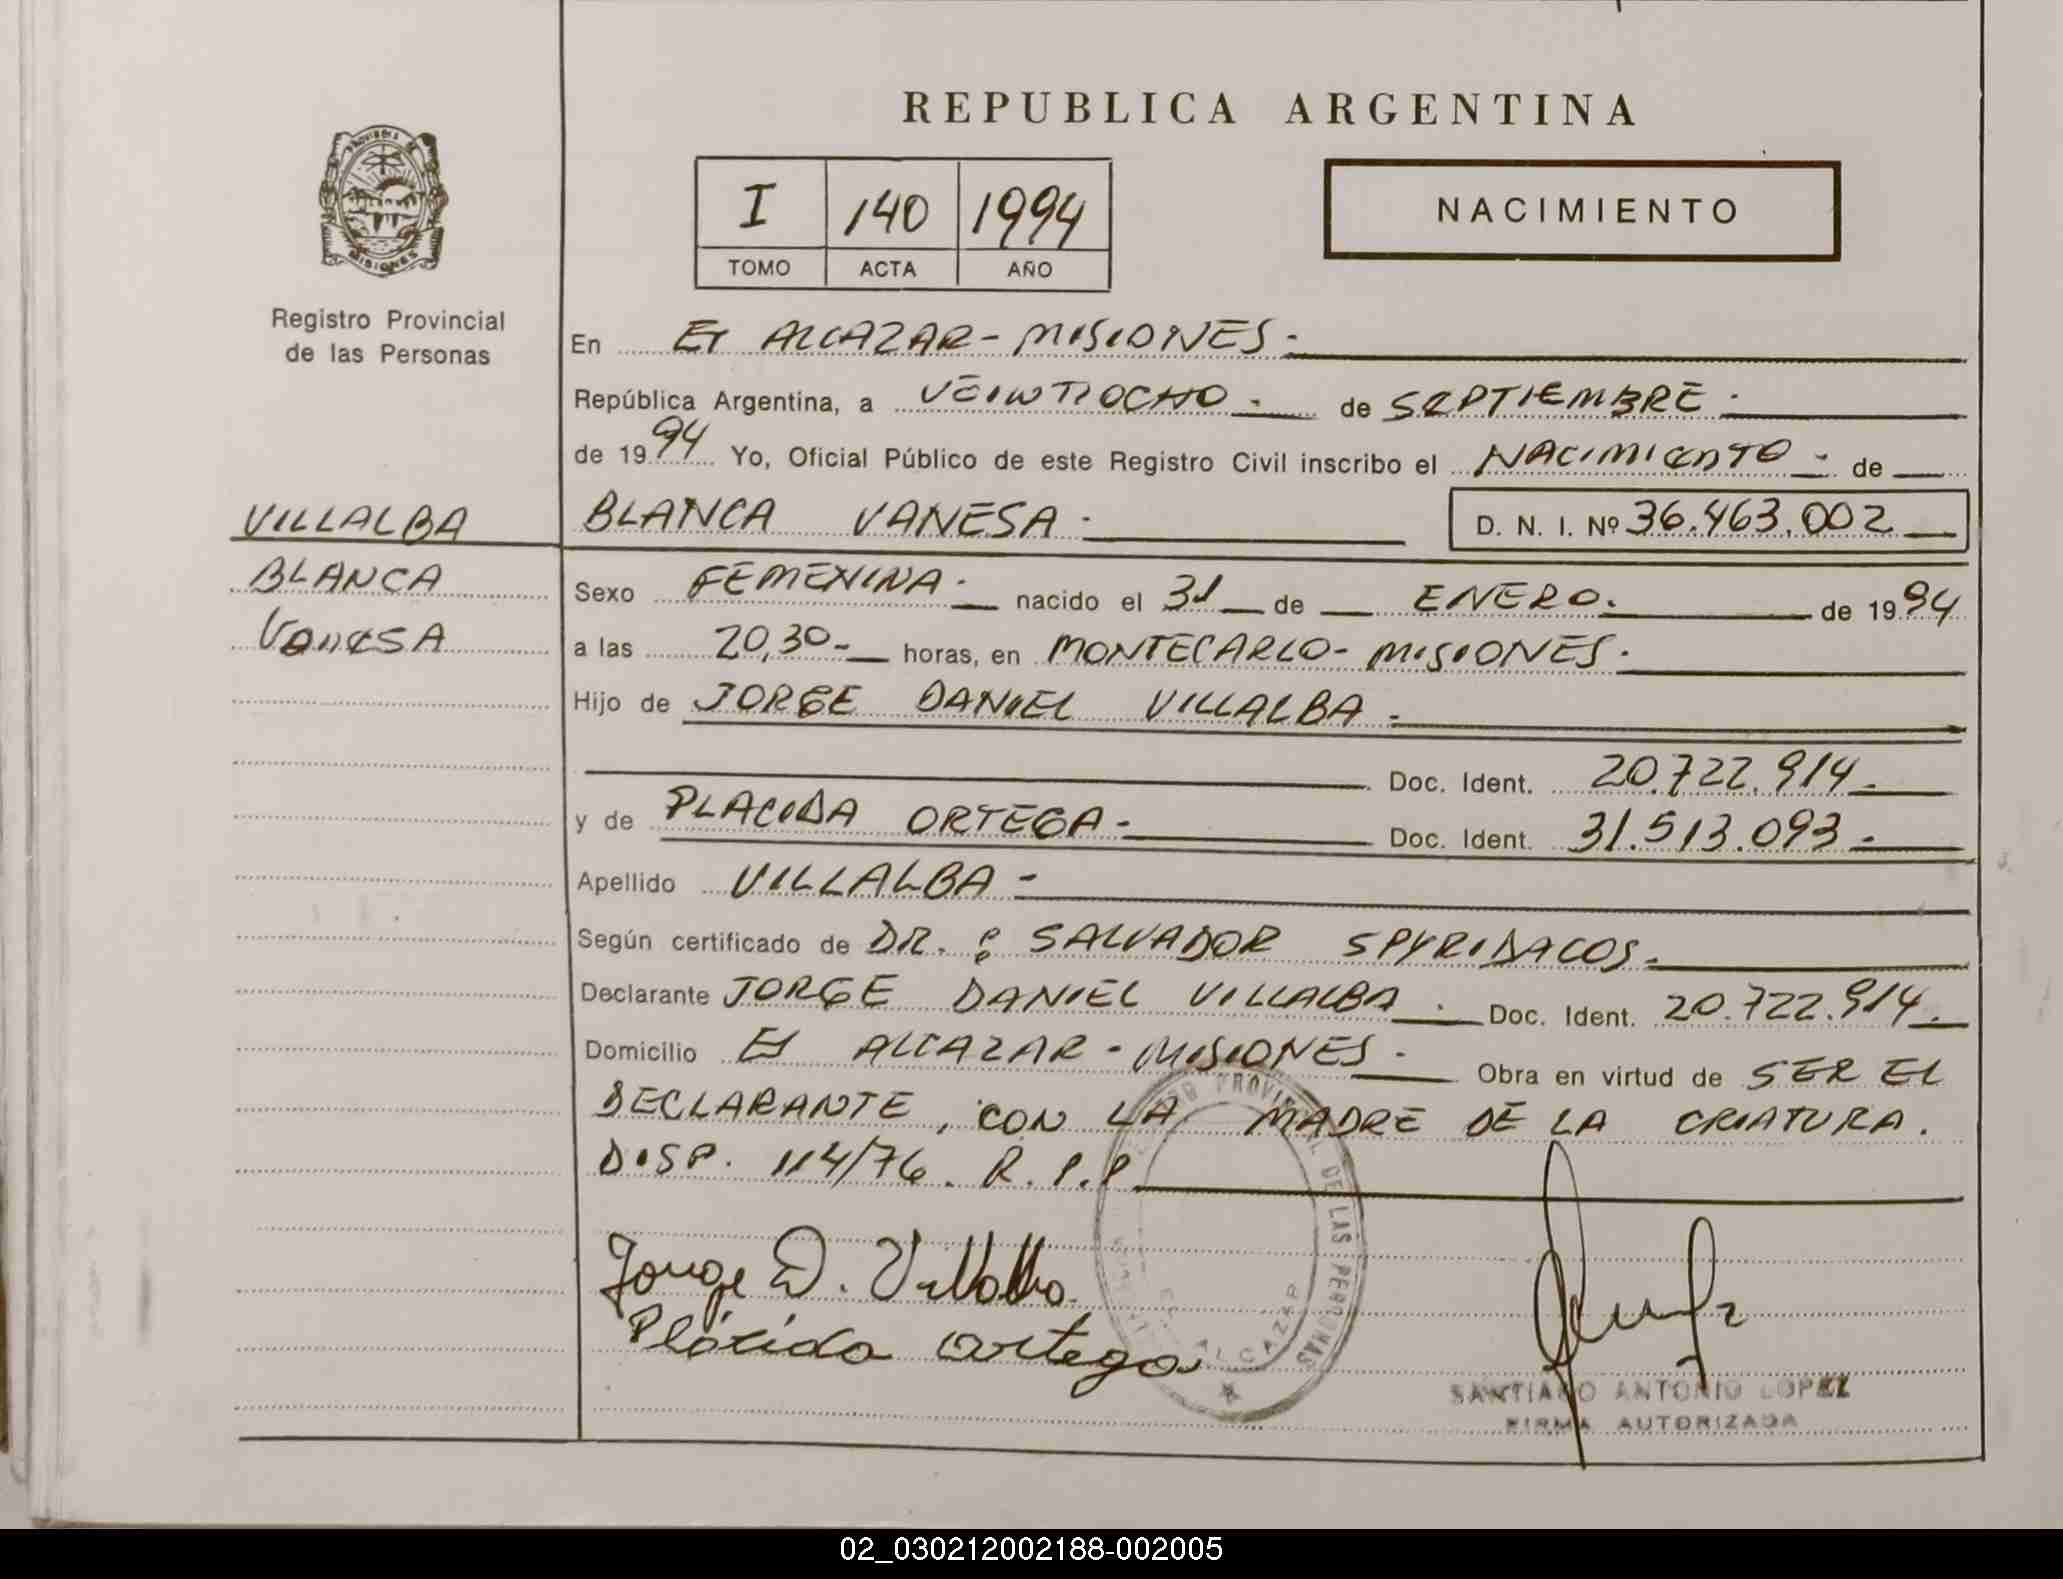 REPUBLICA ARGENTINA
I 140 1994
TOMO ACTA AÑO
NACIMIENTO
PROVINCIA DE
MISIONES
Registro Provincial
de las Personas
En El ALCAZAR - MISIONES -
República Argentina, a VEINTIOCHO - de SEPTIEMBRE -
de 1994 Yo, Oficial Público de este Registro Civil inscribo el NACIMIENTO - de
VILLALBA
BLANCA
VanESA
BLANCA VANESA - D. N. I. Nº 36.463.002
Sexo FEMENINA - nacido el 31 de ENERO. de 1994
a las 20,30- horas, en MONTECARLO - MISIONES -
Hijo de JORGE DANIEL VILLALBA -
Doc. Ident. 20.722.914 -
y de PLACIDA ORTEGA - Doc. Ident. 31.513.093 -
Apellido VILLALBA -
Según certificado de DR. : SALVADOR SPYRIDACOS -
Declarante JORGE DANIEL VILLALBA - Doc. Ident. 20.722.914.
Domicilio El ALCAZAR - MISIONES - Obra en virtud de SER EL
DECLARANTE, CON LA MADRE DE LA CRIATURA.
DISP. 114/76. R.P.P.
Jorge D. Villalba
Plácida Ortega
REGISTRO PROVINCIAL DE LAS PERSONAS
EL ALCAZAR
SANTIAGO ANTONIO LOPEZ
FIRMA AUTORIZADA
02_030212002188-002005